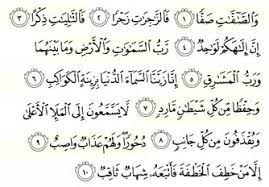 وَٱلصَّٰٓفَّٰتِ صَفًّا ١ فَٱلزَّٰجِرَٰتِ زَجْرًا ٢ فَٱلتَّٰلِيَٰتِ ذِكْرًا ٣
إِنَّ إِلَٰهَكُمْ لَوَٰحِدٌ ٤ رَّبُّ ٱلسَّمَٰوَٰتِ وَٱلْأَرْضِ وَمَا بَيْنَهُمَا
وَرَبُّ ٱلْمَشَٰرِقِ ٥ إِنَّا زَيَّنَّا ٱلسَّمَآءَ ٱلدُّنْيَا بِزِينَةٍ ٱلْكَوَاكِبِ ٦
وَحِفْظًا مِّن كُلِّ شَيْطَٰنٍ مَّارِدٍ ٧ لَّا يَسَّمَّعُونَ إِلَى ٱلْمَلَإِ ٱلْأَعْلَىٰ
وَيُقْذَفُونَ مِن كُلِّ جَانِبٍ ٨ دُحُورًا وَلَهُمْ عَذَابٌ وَاصِبٌ ٩
إِلَّا مَنْ خَطِفَ ٱلْخَطْفَةَ فَأَتْبَعَهُۥ شِهَابٌ ثَاقِبٌ ١٠